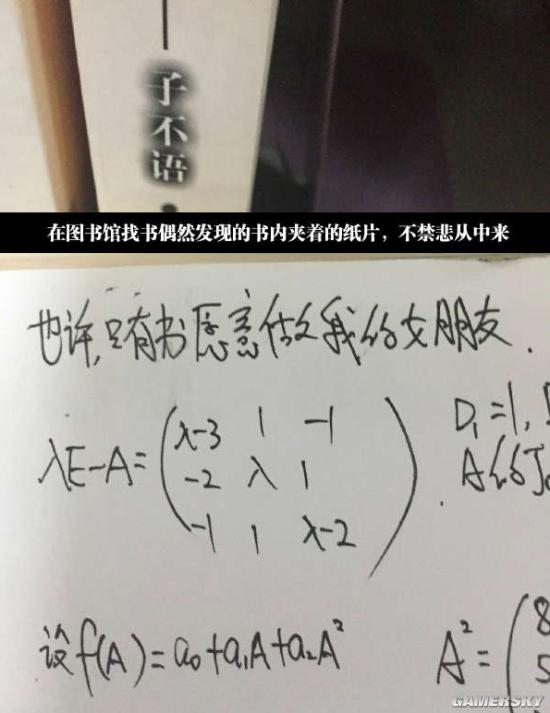 子不语
在图书馆找书偶然发现的书内夹着的纸片，不禁悲从中来
也许,只有书愿意做我的女朋友.
λE-A=(λ-3 1 -1
-2 λ 1
-1 1 λ-2)
D₁=1,
A的J
设f(A)=a₀+a₁A+a₂A²
A²=(8
5
GAMERSKY